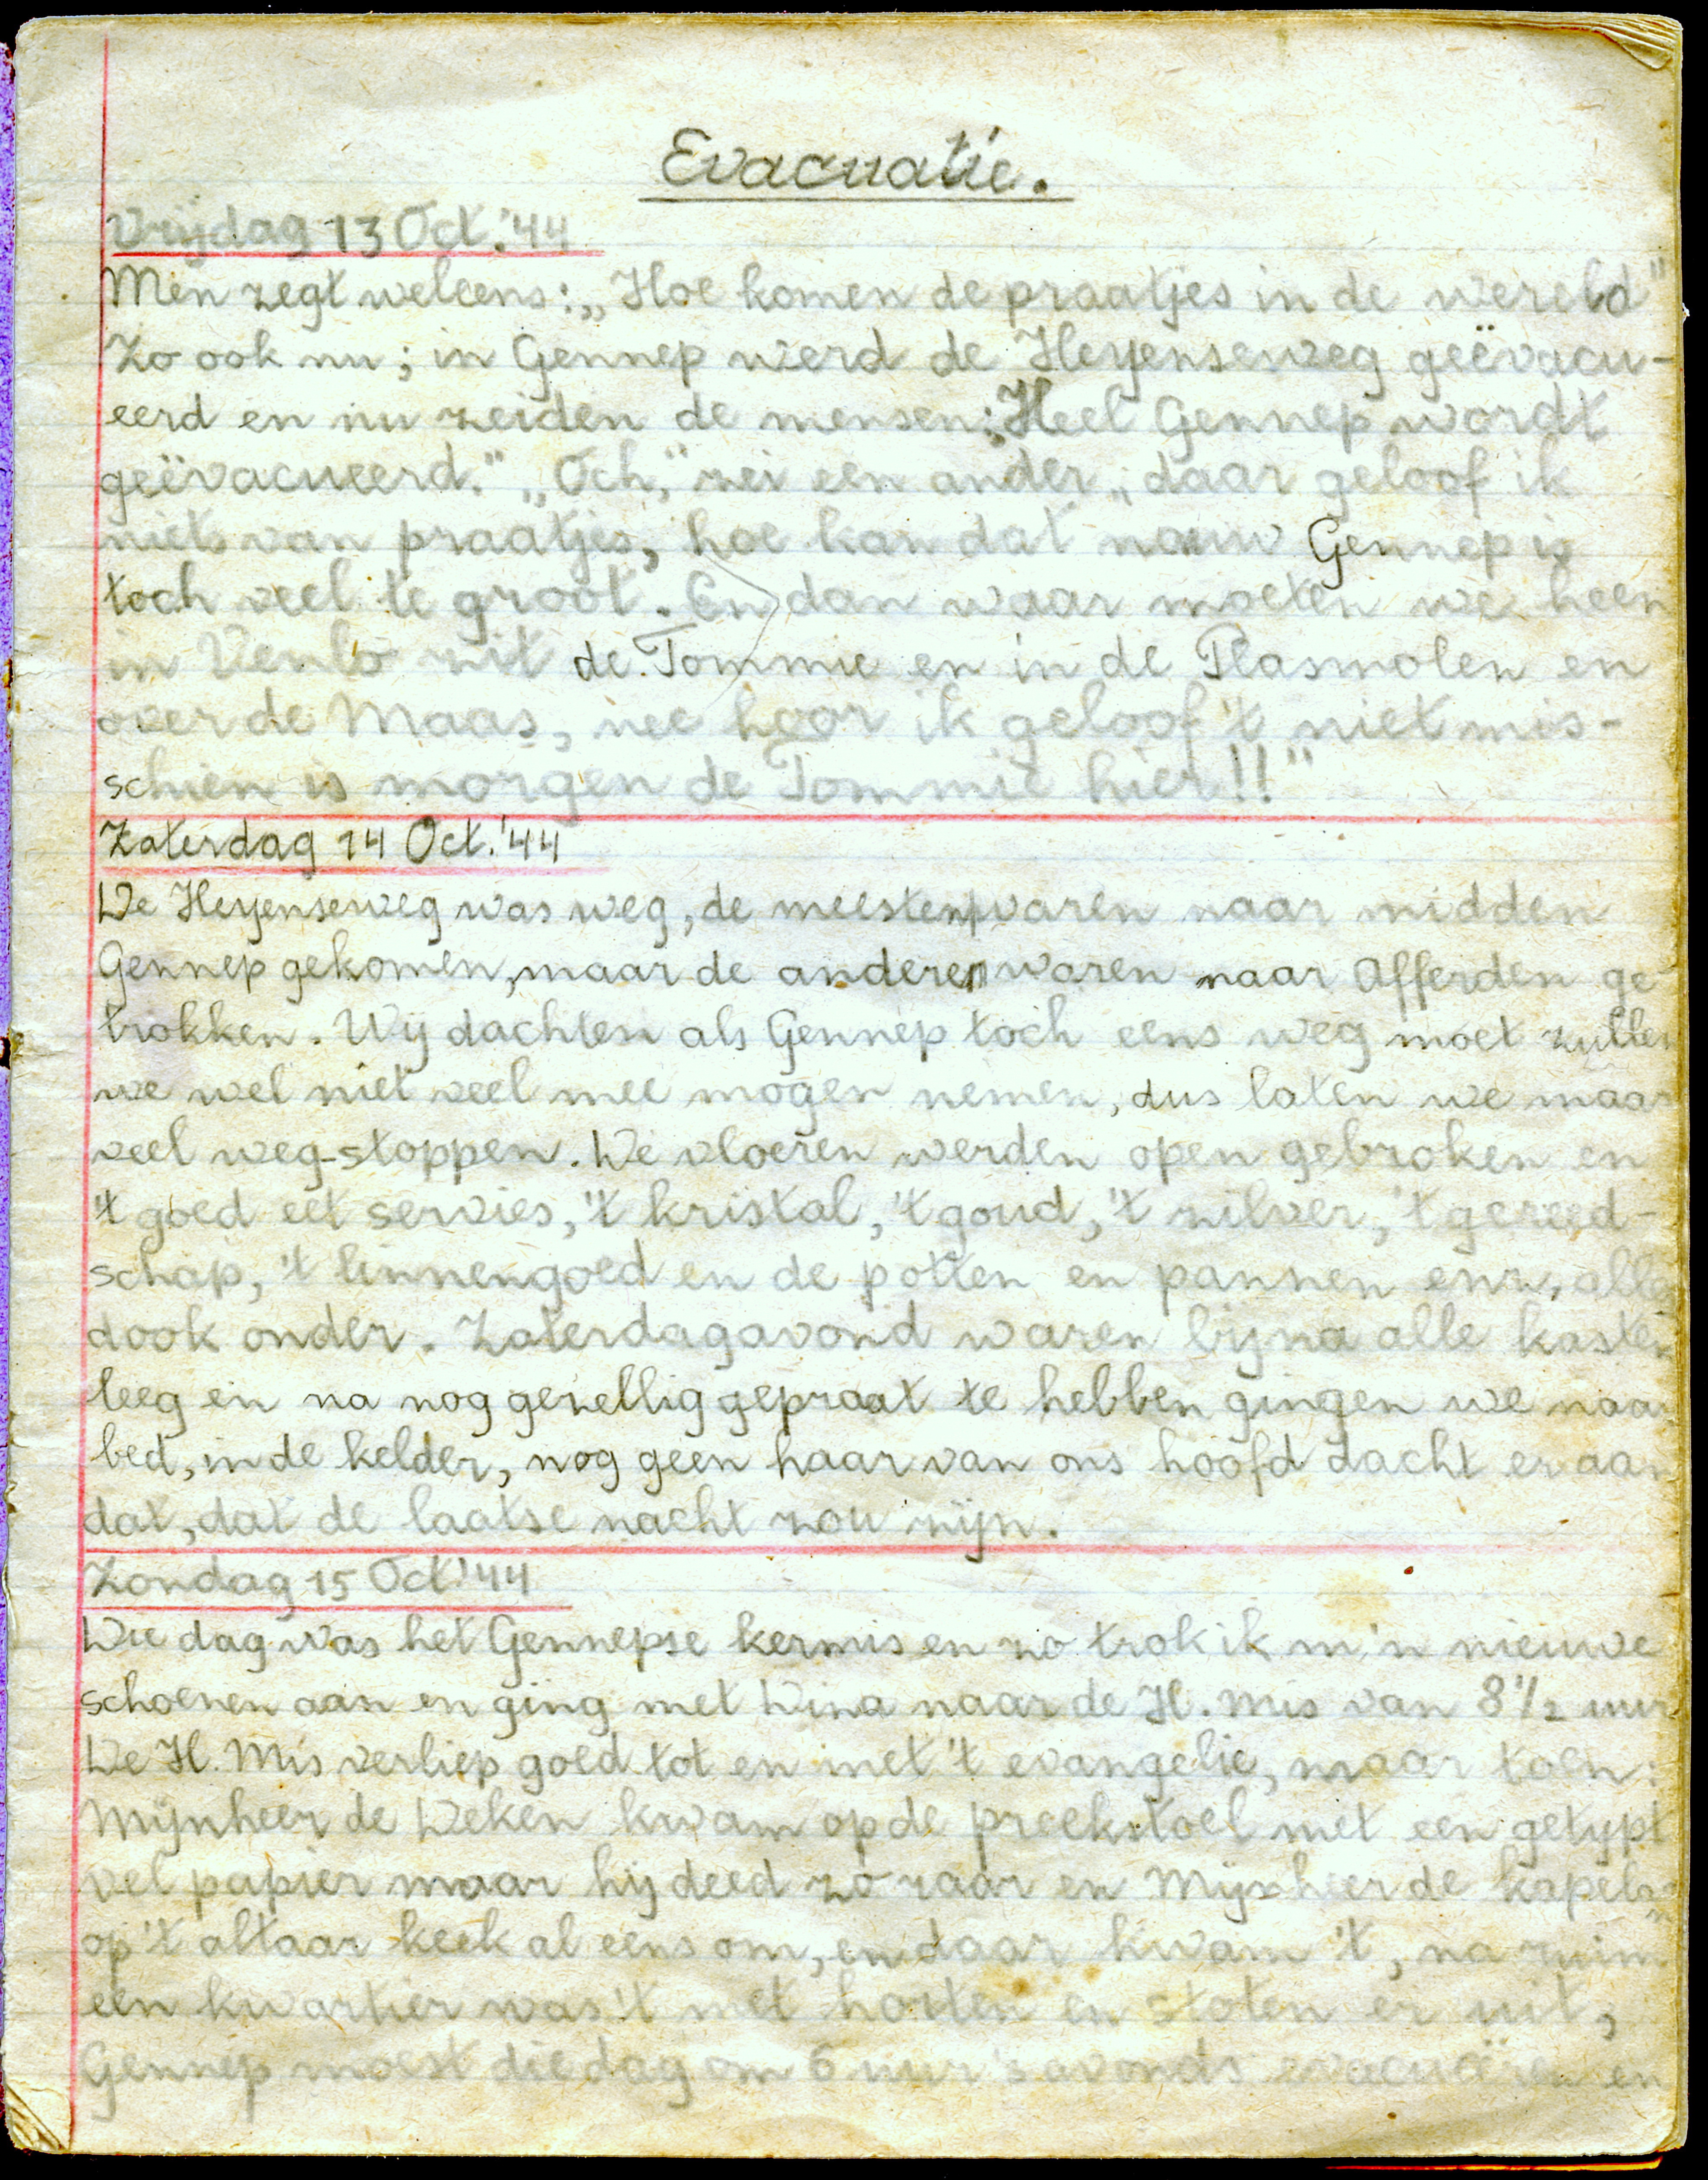 Evacuatie.
Vrijdag 13 Oct. '44
Men zegt weleens: „Hoe komen de praatjes in de wereld"
Zo ook nu; in Gennep werd de Heyenseweg geëvacu-
eerd en nu zeiden de mensen: „Heel Gennep wordt
geëvacueerd." „Och," zei een ander „daar geloof ik
niets van praatjes, hoe kan dat nouw Gennep is
toch veel te groot. En dan waar moeten we heen
in Venlo zit de Tommie en in de Plasmolen en
over de Maas, nee hoor ik geloof 't niet mis-
schien is morgen de Tommie hier!!"
Zaterdag 14 Oct. '44
De Heyenseweg was weg, de meesten waren naar midden
Gennep gekomen, maar de anderen waren naar Afferden ge-
trokken. Wij dachten als Gennep toch eens weg moet zullen
we wel niet veel mee mogen nemen, dus laten we maar
veel weg-stoppen. De vloeren werden open gebroken en
't goed eet servies, 't kristal, 't goud, 't zilver, 't gereed-
schap, 't linnengoed en de potten en pannen enz, alles
dook onder. Zaterdagavond waren bijna alle kasten
leeg en na nog gezellig gepraat te hebben gingen we naar
bed, in de kelder, nog geen haar van ons hoofd dacht er aan
dat, dat de laatse nacht zou zijn.
Zondag 15 Oct '44
Die dag was het Gennepse kermis en zo trok ik m'n nieuwe
schoenen aan en ging met Dina naar de H. Mis van 8 1/2 uur
De H. Mis verliep goed tot en met 't evangelie, maar toen:
Mijnheer de Deken kwam op de preekstoel met een getypt
vel papier maar hij deed zo raar en Mijnheer de kapelaan
op 't altaar keek al eens om, en daar kwam 't, na ruim
een kwartier was 't met horten en stoten er uit,
Gennep moest die dag om 6 uur 's avonds evacuëren en